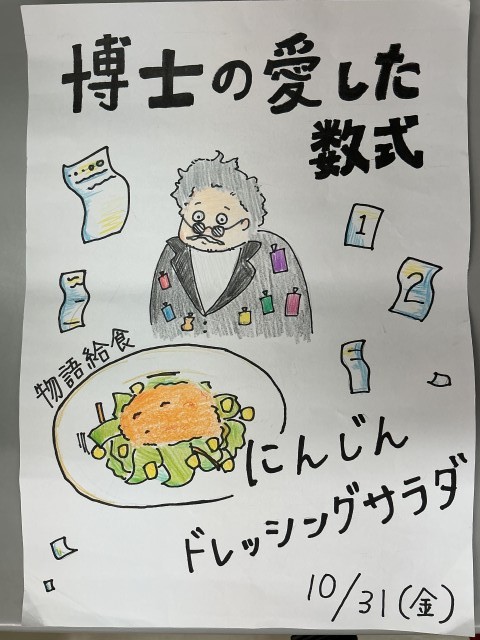 博士の愛した
数式
1
2
物語給食
にんじん
ドレッシングサラダ
10/31(金)